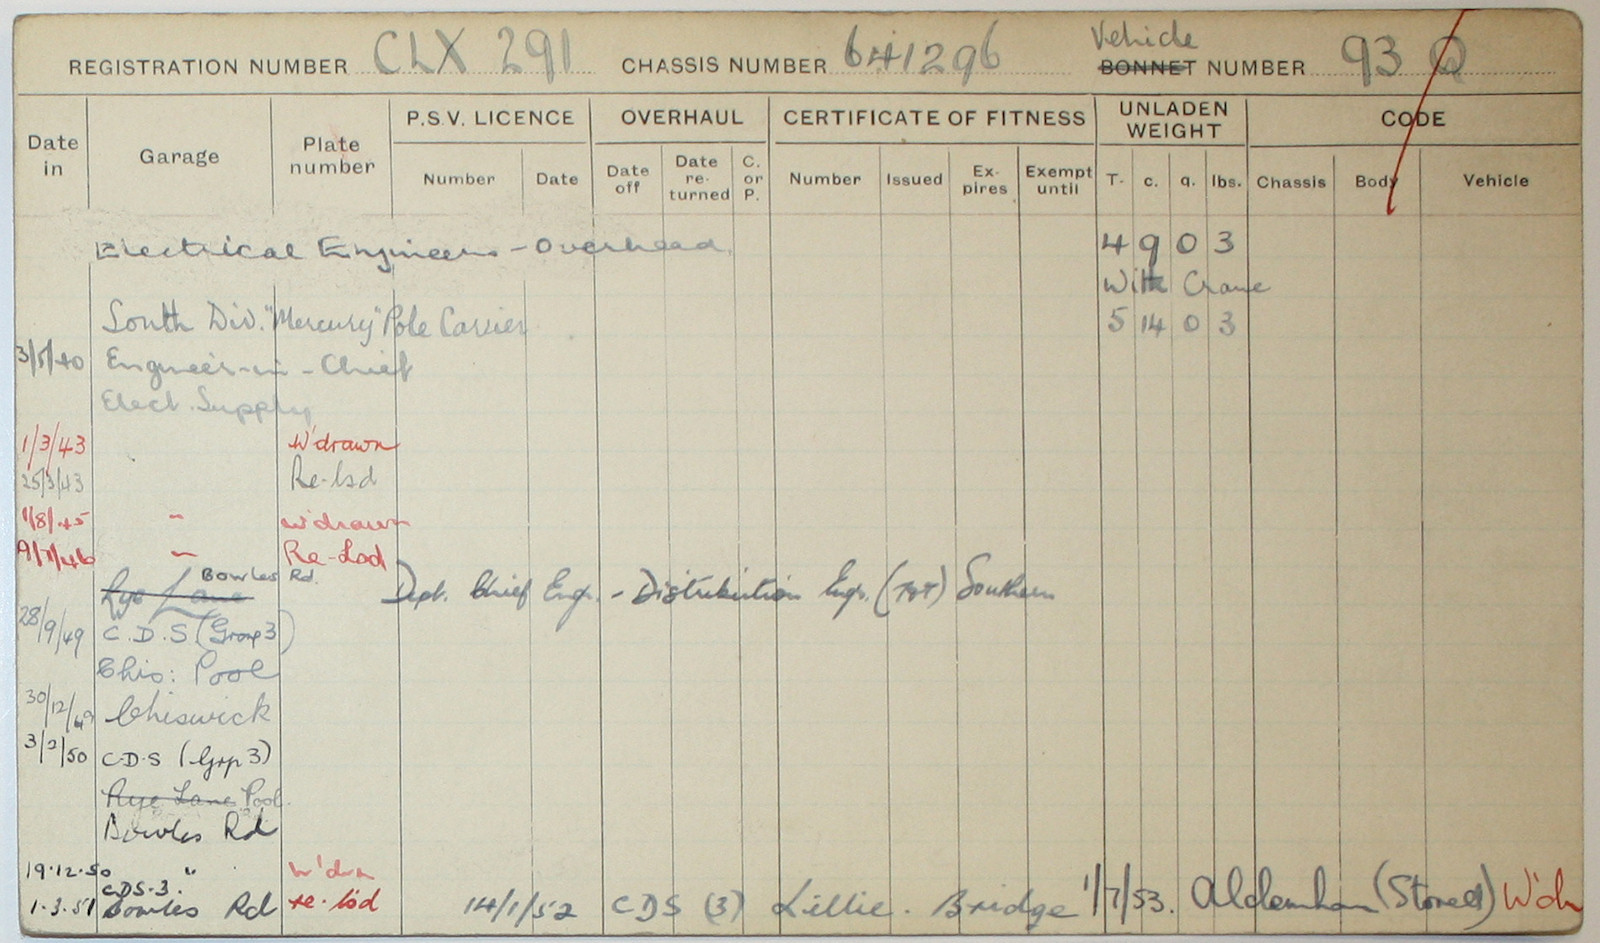 REGISTRATION NUMBER CLX 291 CHASSIS NUMBER 641296 Vehicle BONNET NUMBER 93 Q
Date in Garage Plate number P.S.V. LICENCE OVERHAUL CERTIFICATE OF FITNESS UNLADEN WEIGHT CODE
Number Date Date off Date re-turned C. or P. Number Issued Ex-pires Exempt until T. c. q. lbs. Chassis Body Vehicle
Electrical Engineers - Overhead. 4 9 0 3
With Crane
South Div. "Mercury" Pole Carrier 5 14 0 3
3/5/40 Engineer-in-Chief
Elect. Supply
1/3/43 W'drawn
25/3/43 Re-lsd
1/8/45 " w'drawn
9/7/46 " Re-Lsd
Bowles Rd.
Rye Lane Dept. Chief Engr. - Distribution Engr. Southern
28/9/49 C.D.S (Group 3)
Chis: Pool
30/12/49 Chiswick
3/2/50 C.D.S (Grp 3)
Rye Lane Pool.
Bowles Rd
19.12.50 " W'drn
CDS-3.
1.3.51 Bowles Rd re-lsd 14/1/52 CDS (3) Lillie. Bridge 1/7/53. Aldenham (Stored) W'dn